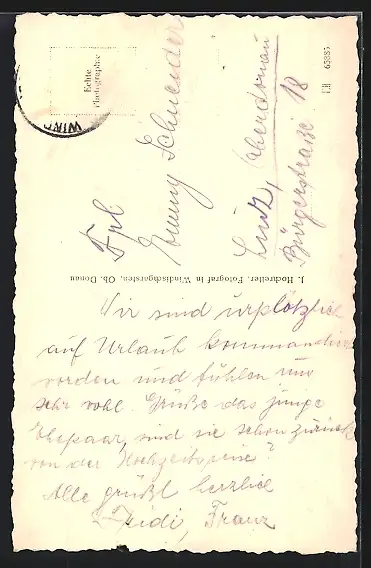 Echte
Photographie
LH 65885
WIND
Frl
Emmy Schneider
Linz, Oberdonau
Bürgerstraße 18
J. Hochreiter, Fotograf in Windischgarsten, Ob. Donau
Wir sind urplötzlich
auf Urlaub kommandiert
worden und fühlen uns
sehr wohl. Grüße das junge
Ehepaar, sind sie schon zurück
von der Hochzeitsreise?
Alle grüßt herzlich
Heidi, Franz